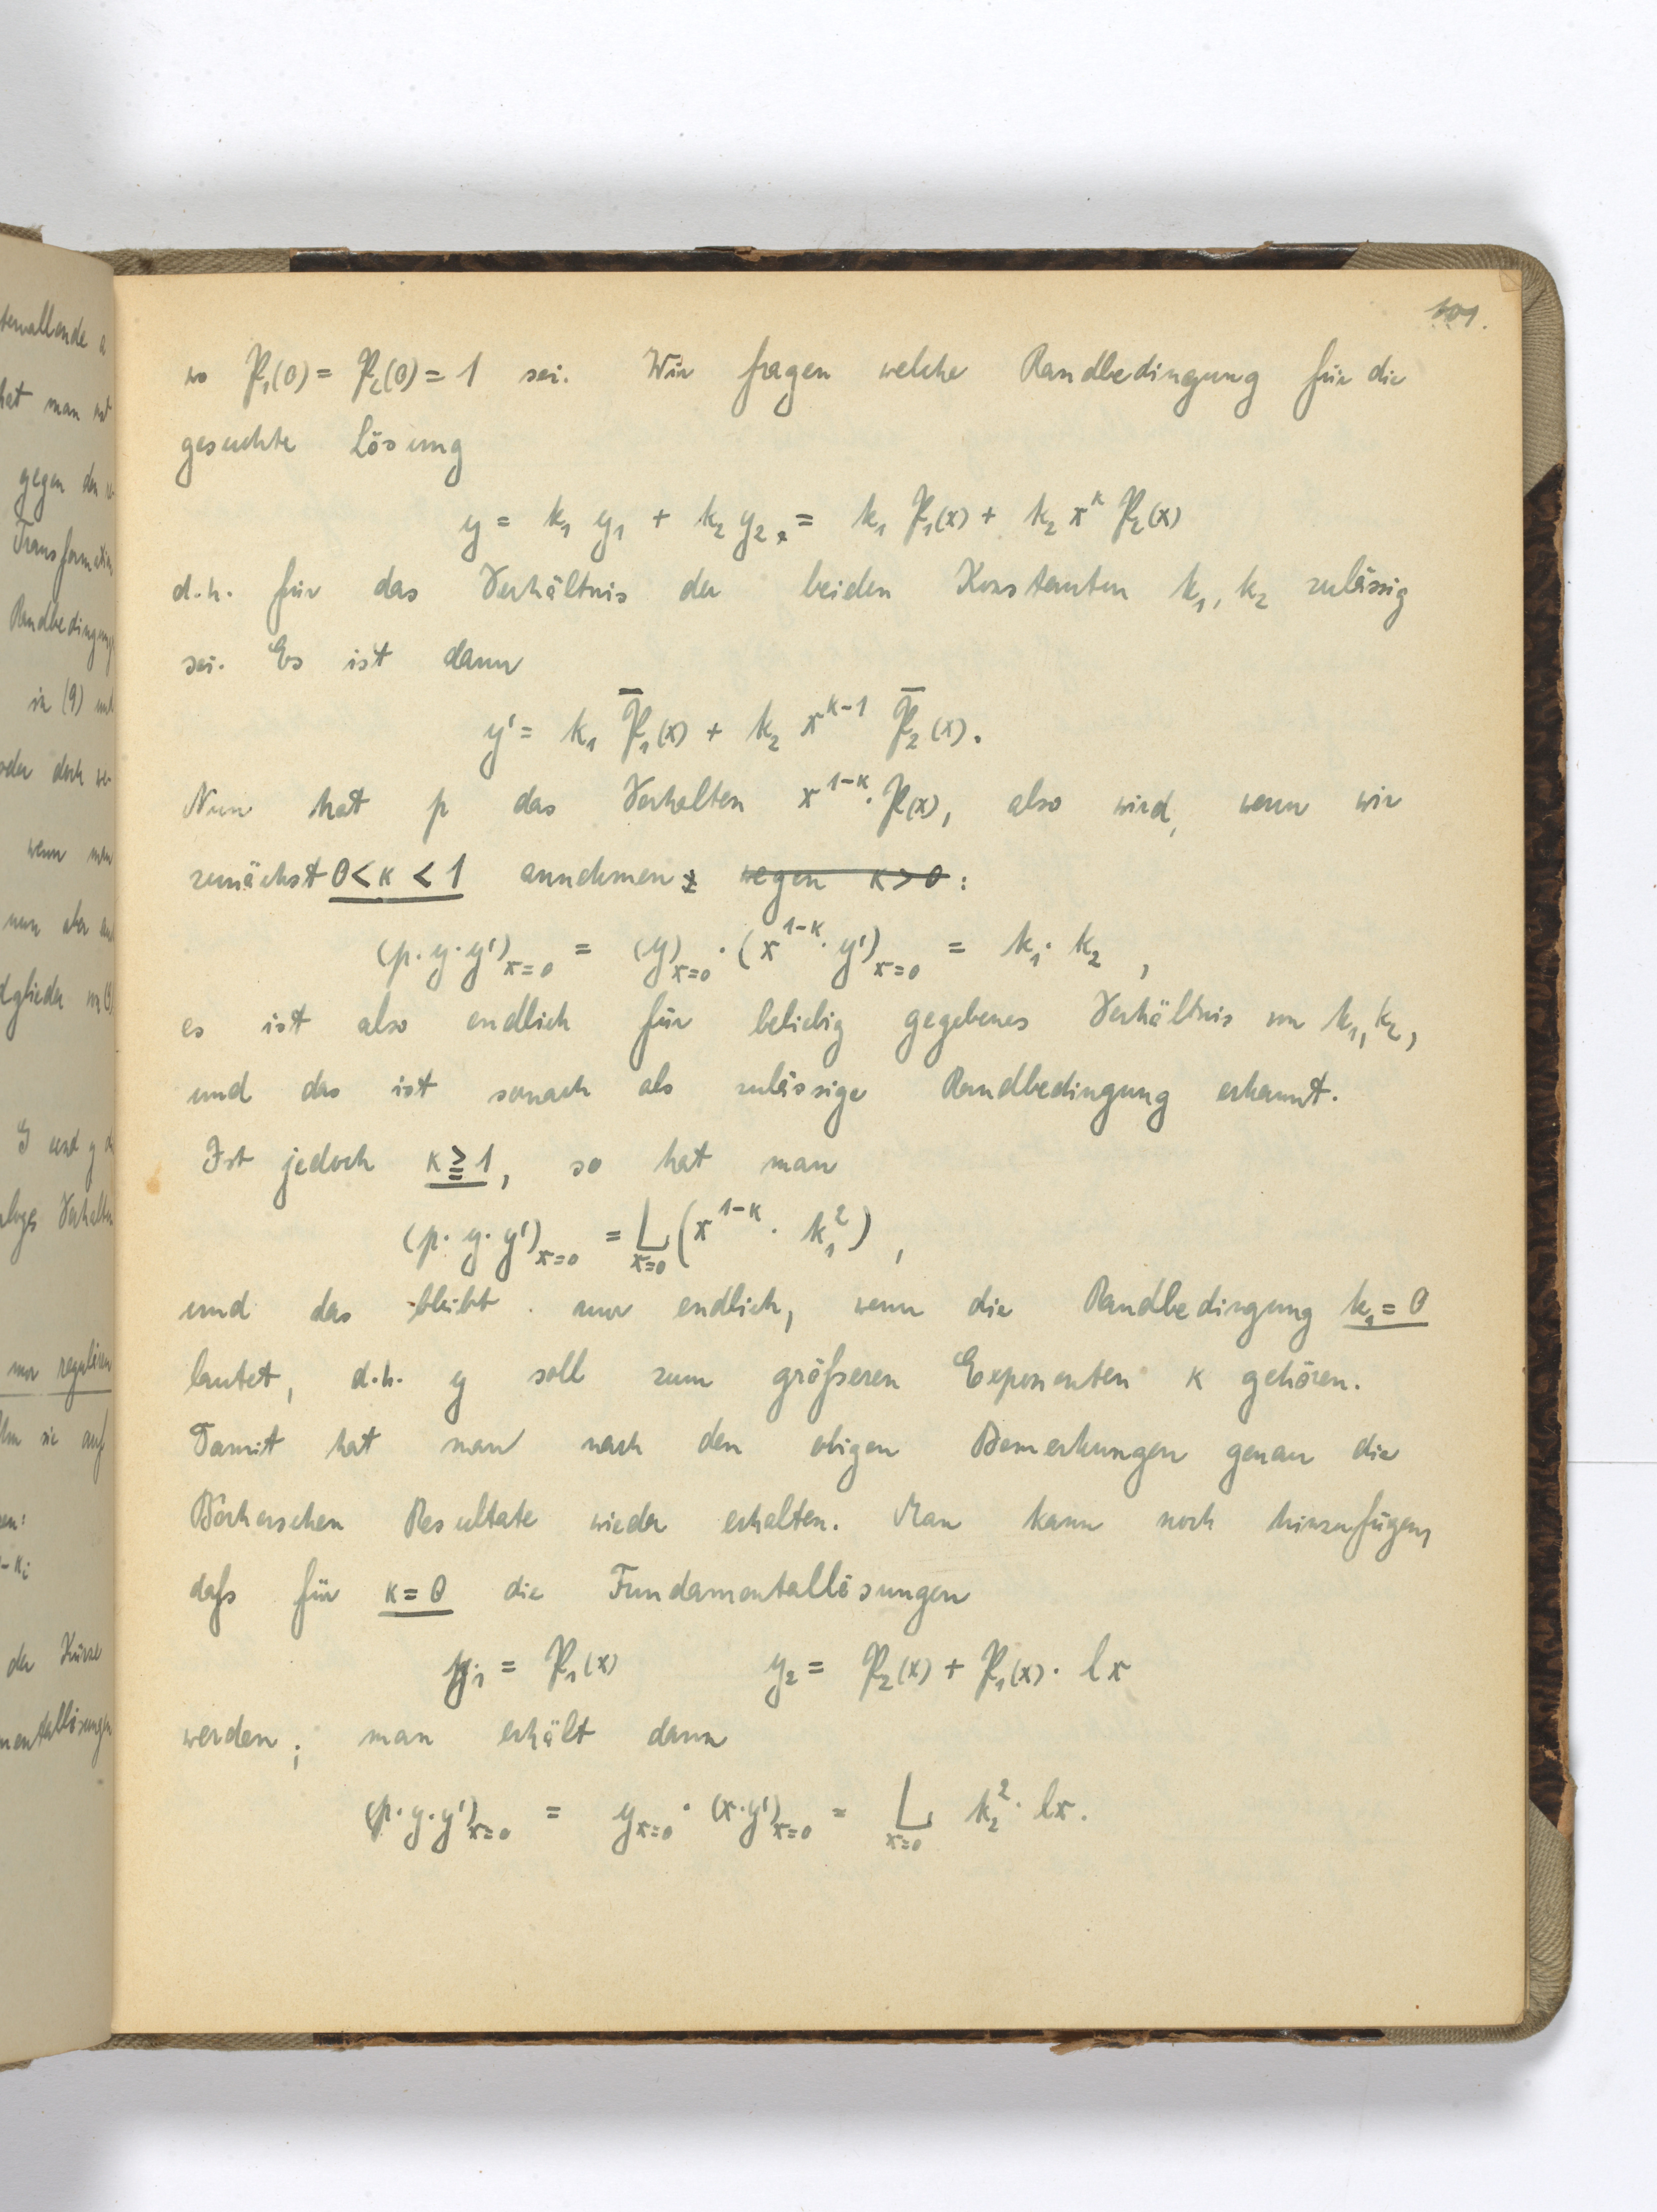 101.
wo P₁(0) = P₂(0) = 1 sei. Wir fragen welche Randbedingung für die
gesuchte Lösung
y = k₁ y₁ + k₂ y₂ = k₁ P₁(x) + k₂ x^κ P₂(x)
d.h. für das Verhältnis der beiden Konstanten k₁, k₂ zulässig
sei. Es ist dann
y' = k₁ P̅₁(x) + k₂ x^{κ-1} P̅₂(x).
Nun hat p das Verhalten x^{1-κ}·P(x), also wird, wenn wir
zunächst 0 < κ < 1 annehmen wegen κ > 0 :
(p·y·y')_{x=0} = (y)_{x=0} · (x^{1-κ}·y')_{x=0} = k₁· k₂ ,
es ist also endlich für beliebig gegebenes Verhältnis von k₁, k₂,
und das ist sonach als zulässige Randbedingung erkannt.
Ist jedoch κ ≧ 1, so hat man
(p·y·y')_{x=0} = L_{x=0} (x^{1-κ} · k₁²) ,
und das bleibt nur endlich, wenn die Randbedingung k₁ = 0
lautet, d.h. y soll zum größeren Exponenten κ gehören.
Damit hat man nach den obigen Bemerkungen genau die
Bôcherschen Resultate wieder erhalten. Man kann noch hinzufügen,
daß für κ = 0 die Fundamentallösungen
y₁ = P₁(x) y₂ = P₂(x) + P₁(x) · lx
werden; man erhält dann
(p·y·y')_{x=0} = y_{x=0} · (x·y')_{x=0} = L_{x=0} k₂² · lx.